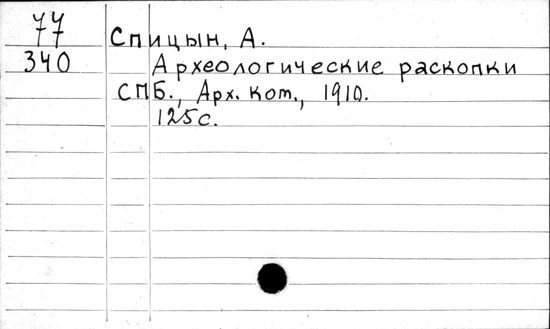 77
Спицын, А.
340
Археологические раскопки
СПБ., Арх. ком., 1910.
125с.